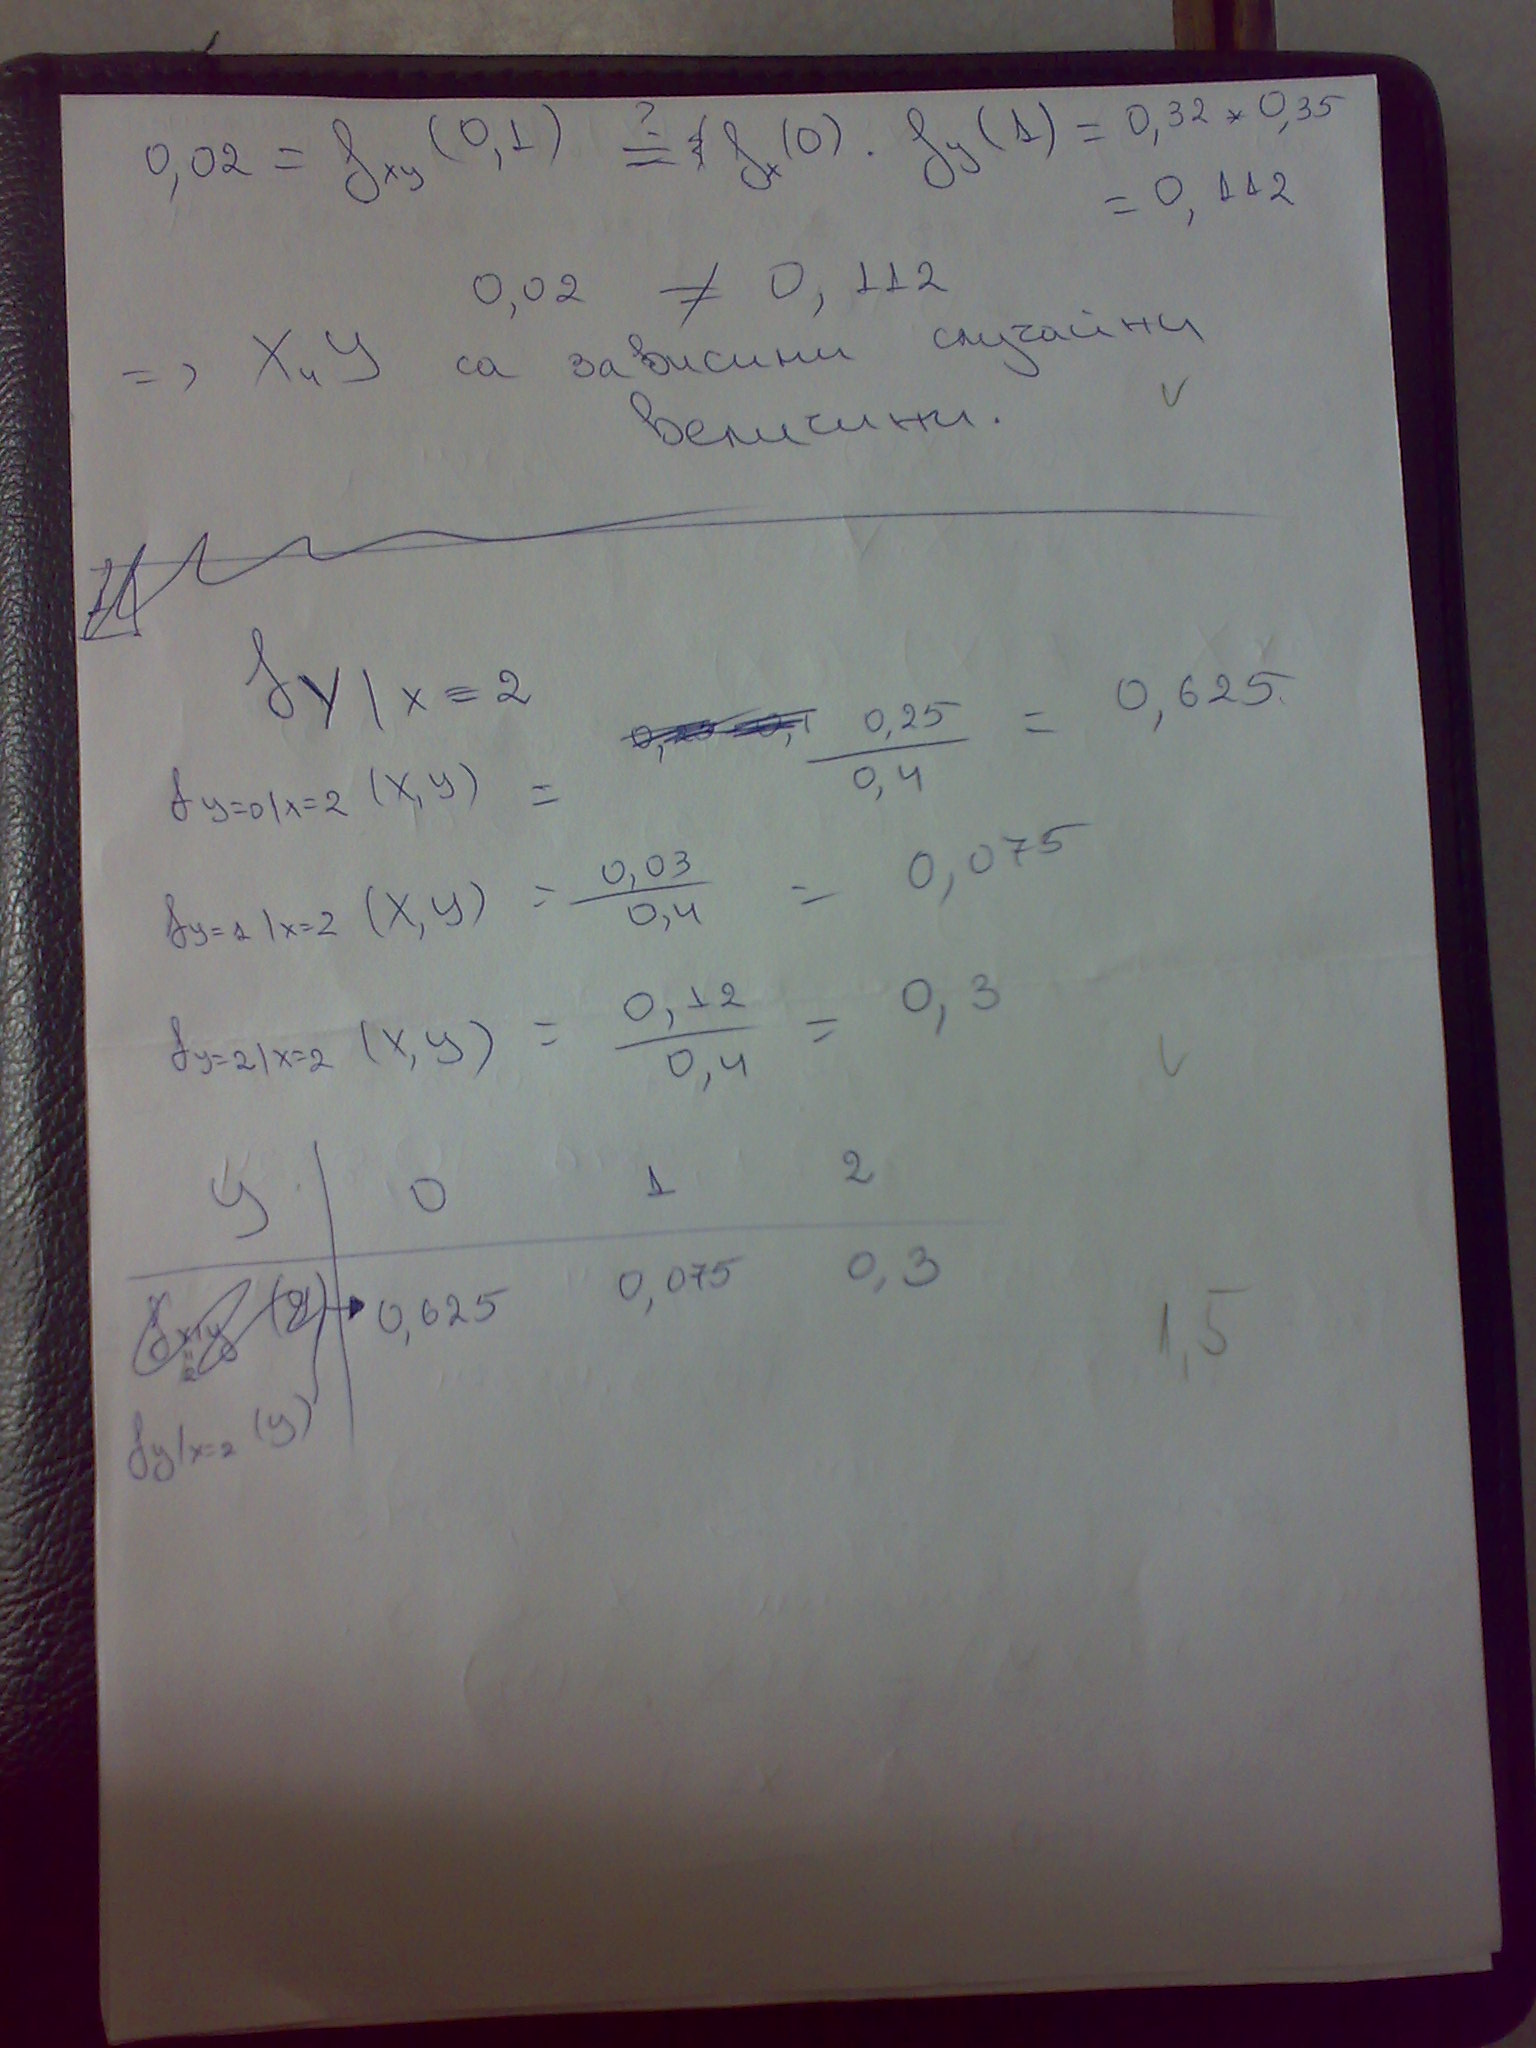 0,02 = f_xy (0,1) ?= f_x(0) . f_y(1) = 0,32 * 0,35
= 0,112
0,02 ≠ 0,112
=> X и Y са зависими случайни
величини. v
f_Y|x=2
f_y=0|x=2 (X,Y) = 0,25/0,4 = 0,625
f_y=1|x=2 (X,Y) = 0,03/0,4 = 0,075
f_y=2|x=2 (X,Y) = 0,12/0,4 = 0,3
v
Y | 0 1 2
0,625 0,075 0,3
1,5
f_y|x=2 (y)